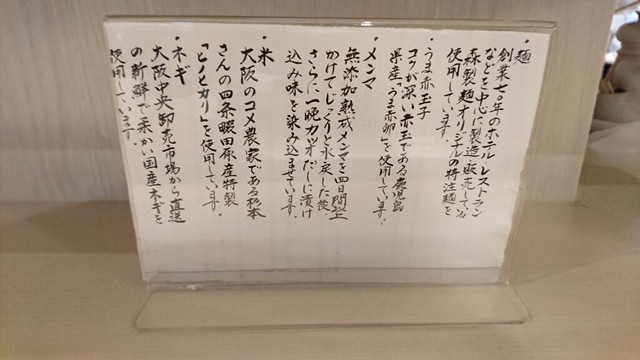 ・麺
創業七十年のホテル、レストラン
などを中心に製造・販売している
森製麺オリジナルの特注麺を
使用しています。
・うま赤玉子
コクが深い赤玉である鹿児島
県産「うま赤卵」を使用しています。
・メンマ
無添加熟成メンマを四日間以上
かけてじっくりと水戻しした後
さらに一晩カツオだしに漬け
込み味を染み込ませています。
・米
大阪のコメ農家である杉本
さんの四条畷田原産特製
「ヒノヒカリ」を使用しています。
・ネギ
大阪中央卸売市場から直送
の新鮮で柔かい国産ネギを
使用しています。